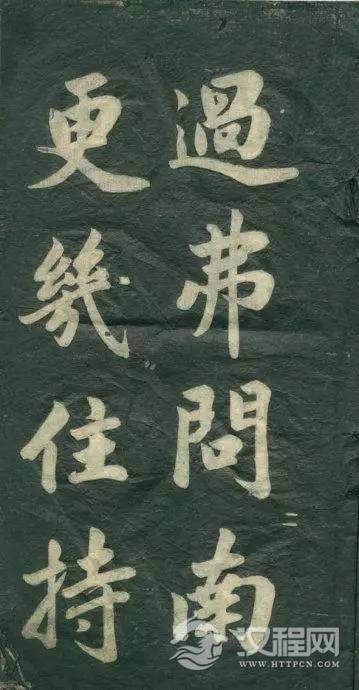 過弗問南
更幾住持
汉程网
WWW.HTTPCN.COM